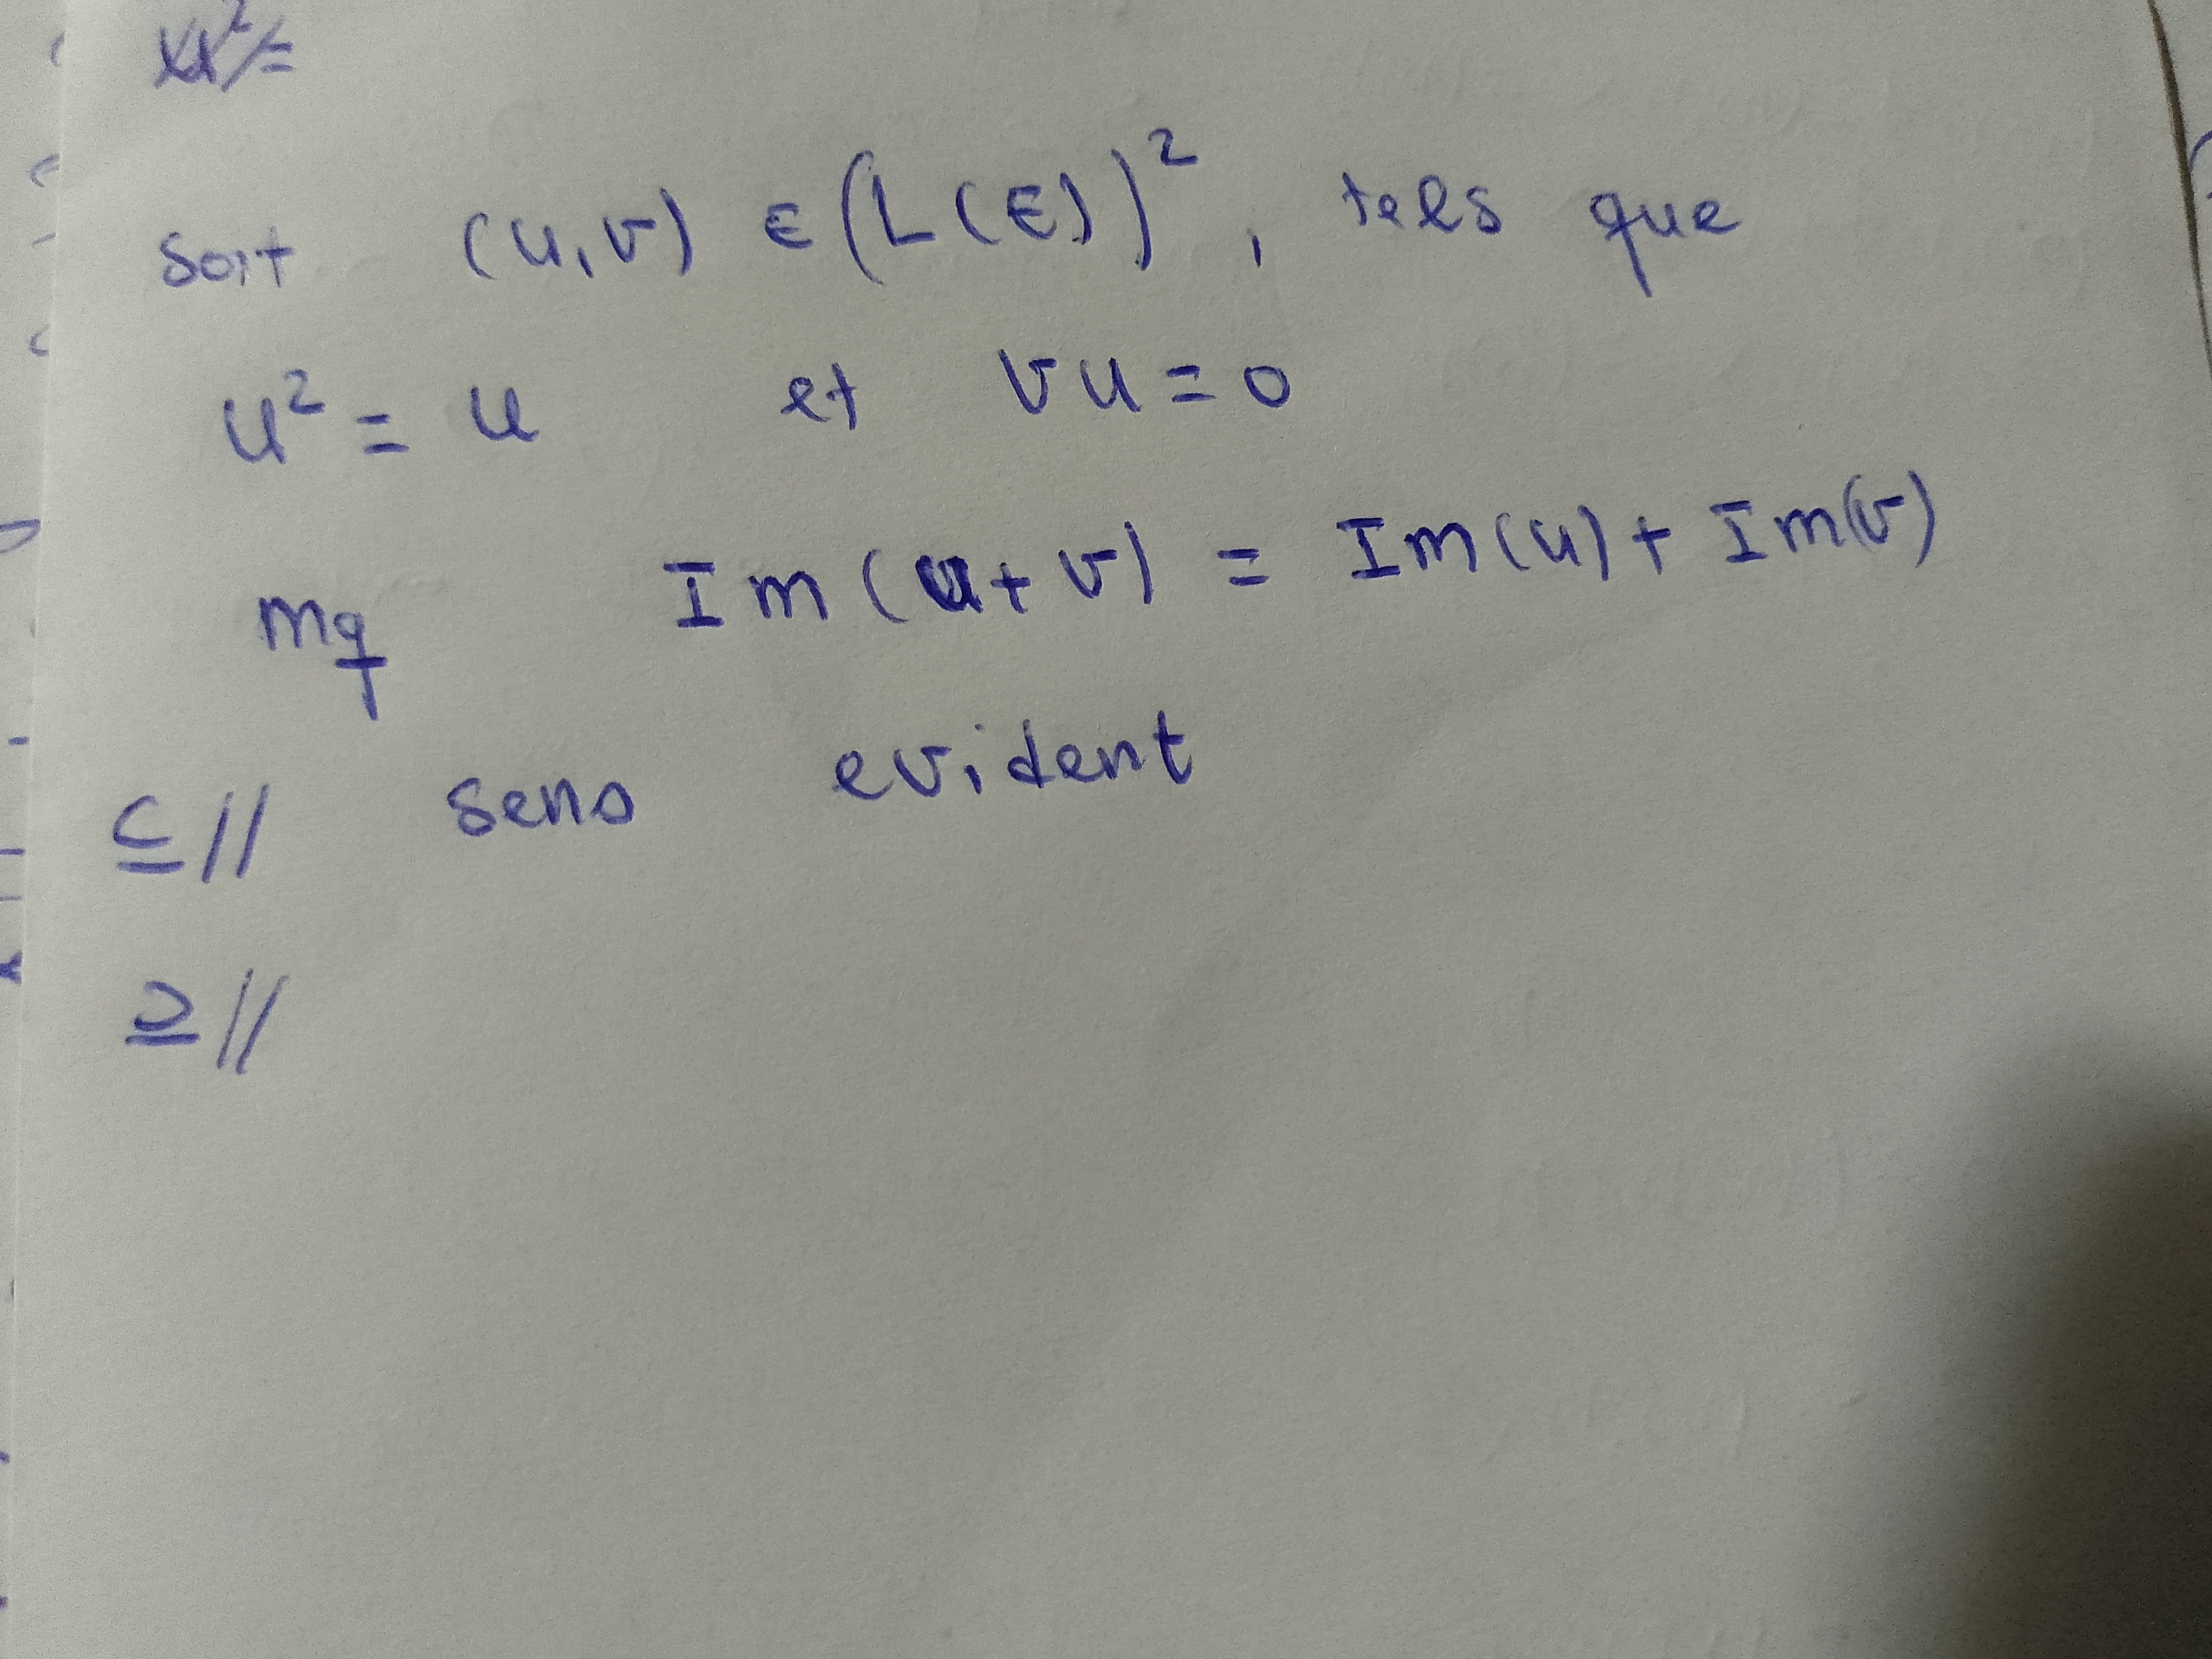 soit (u,v) ∈ (L(E))², tels que
u² = u et vu = 0
mq Im(u+v) = Im(u) + Im(v)
⊆// sens evident
⊇//